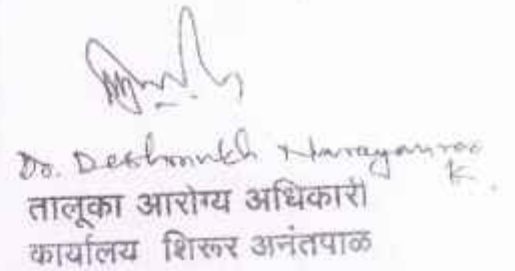 Dr. Deshmukh Narayanrao
K.
तालूका आरोग्य अधिकारी
कार्यालय शिरूर अनंतपाळ